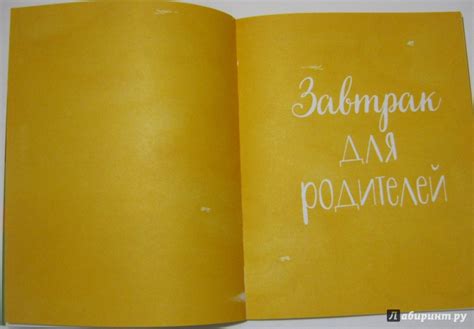 Завтрак
для
родителей
Лабиринт.ру